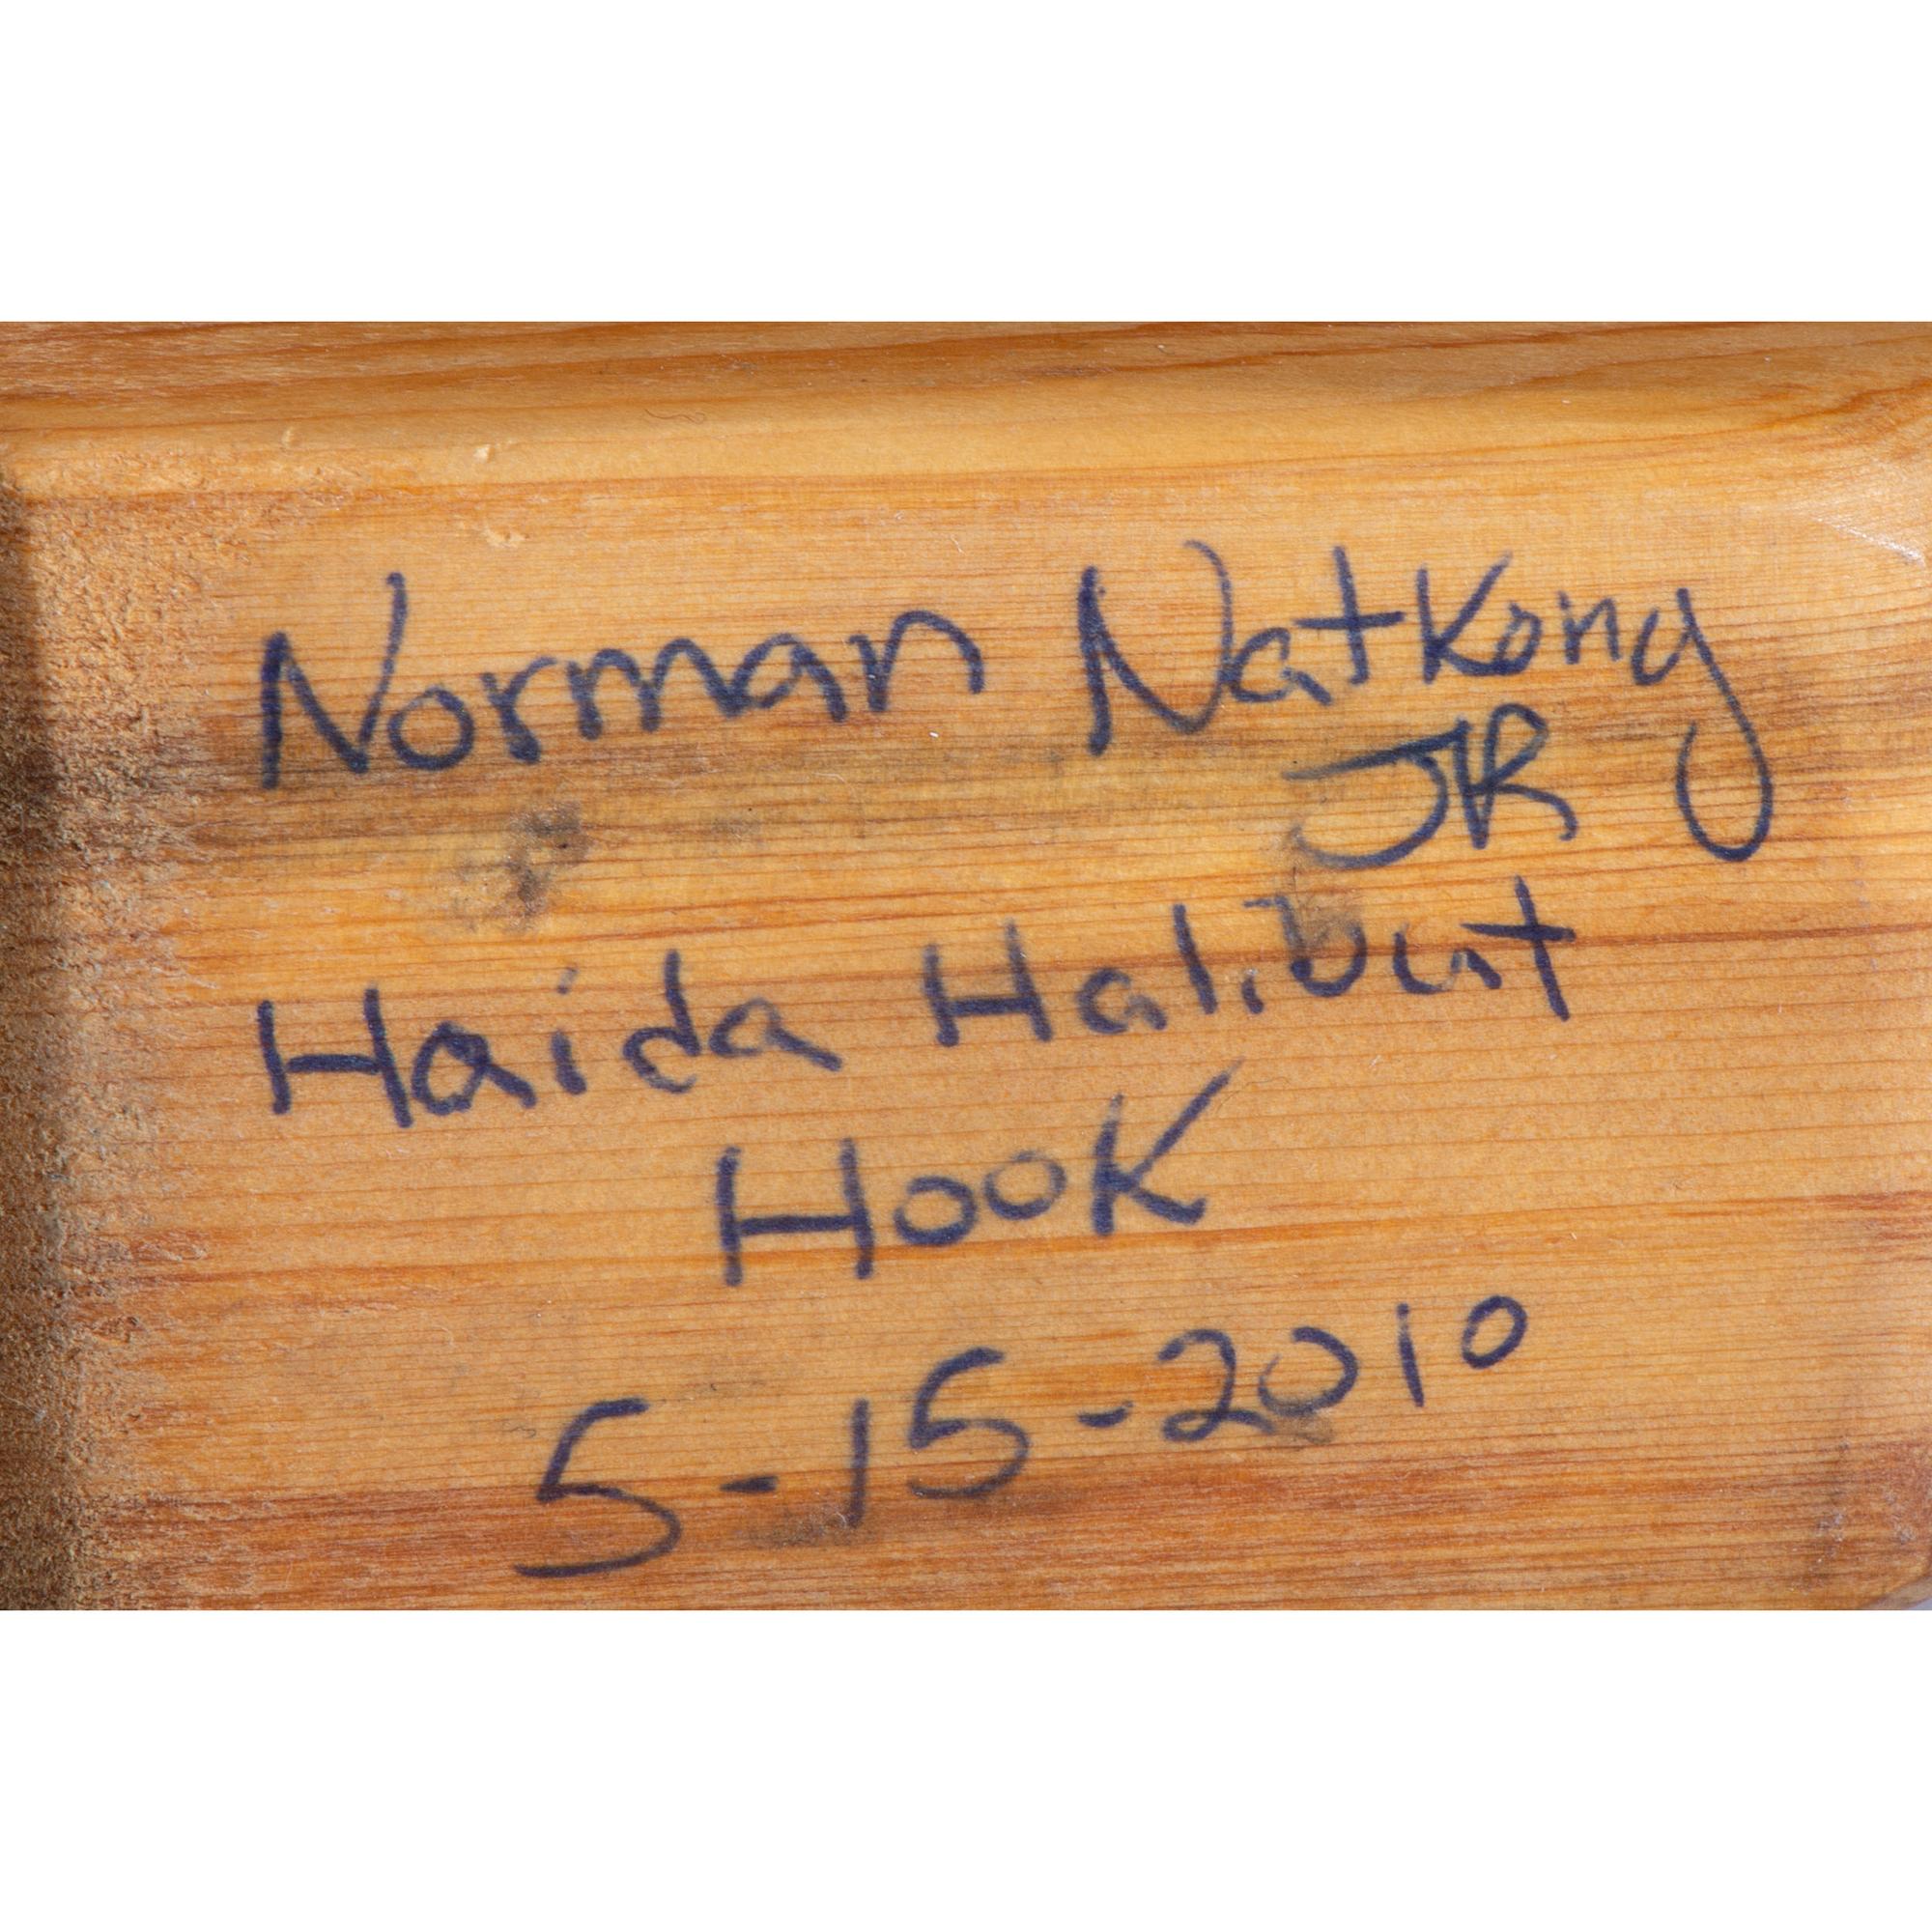 Norman Natkong
JR
Haida Halibut
Hook
5-15-2010